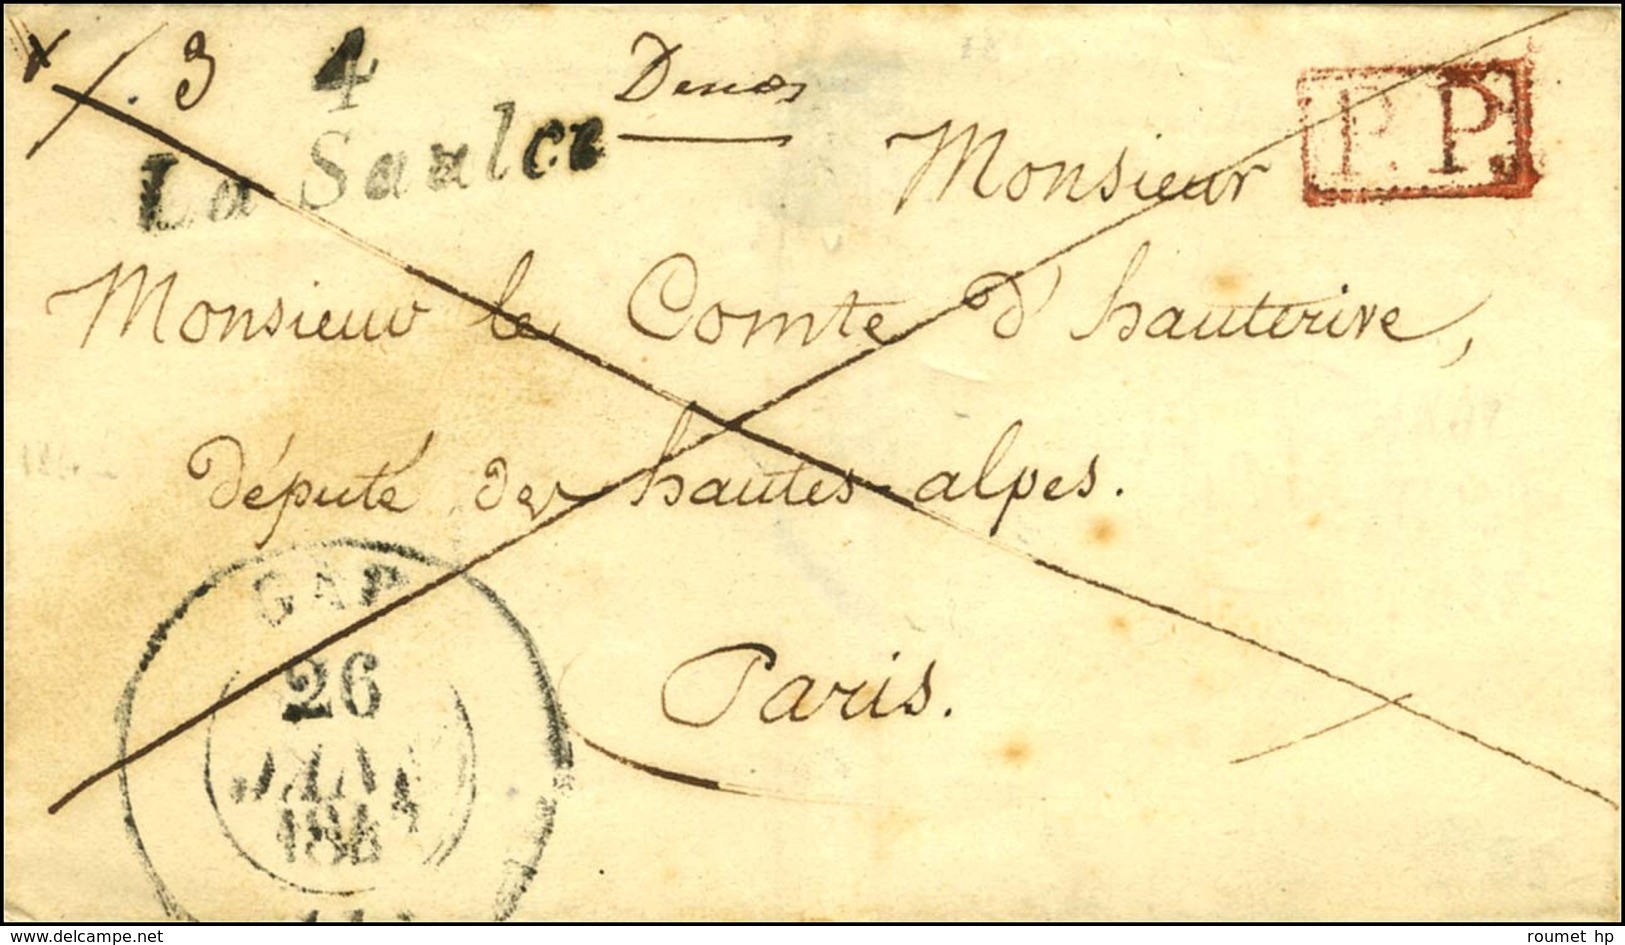 3
4
La Saulce
P.P.
Monsieur
Monsieur le Comte d'hauterive,
député des hautes-alpes.
GAP
26
JANV
Paris.
roumet hp
www.delcampe.net